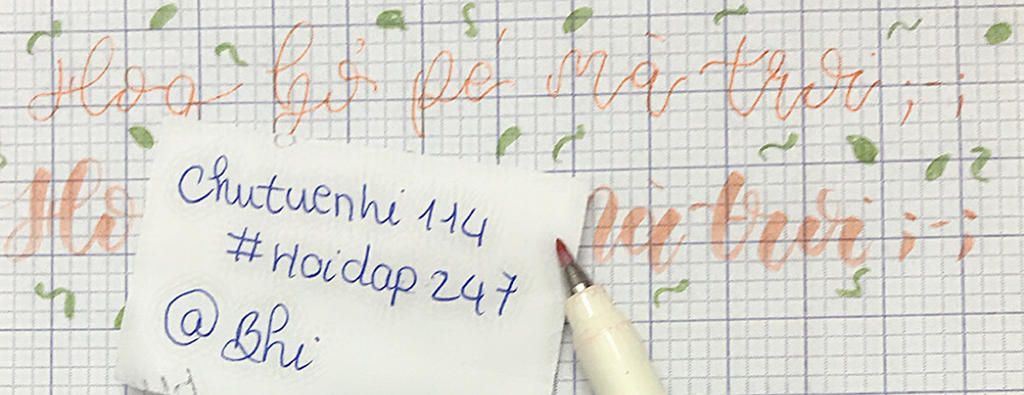 Hoa hổ pé mà trơi ;-;
mà trơi ;-;
Chutuenhi 114
#Hoidap 247
@Bhi